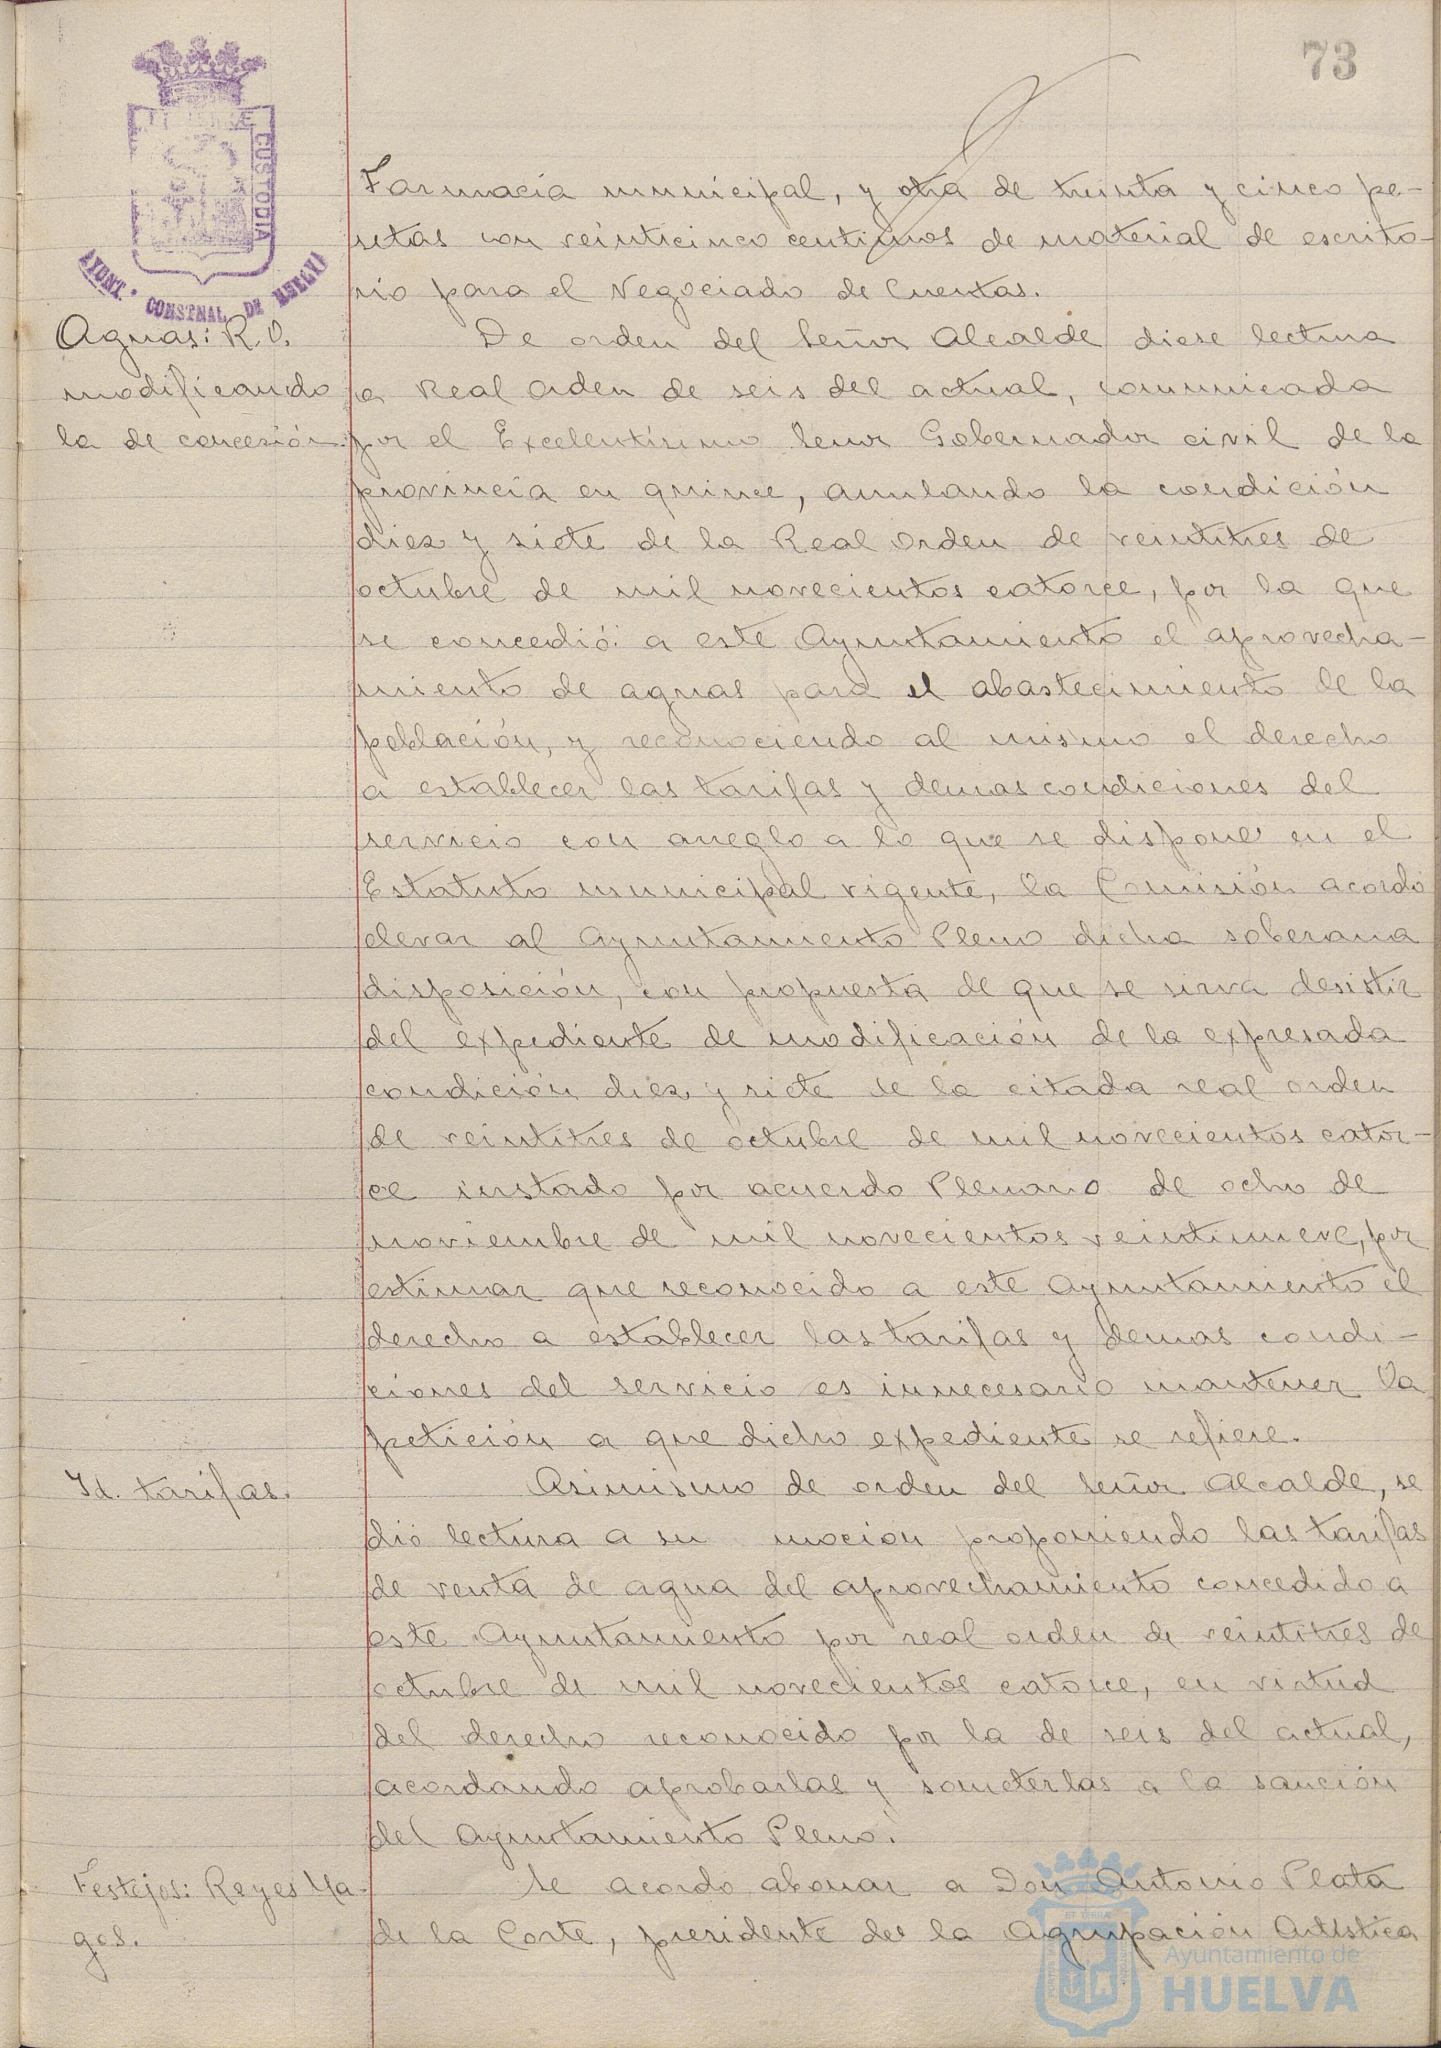 73
TERRÆ CUSTODIA
AYUNT. CONSTNAL DE HUELVA
Farmacia municipal, y otra de treinta y cinco pe-
setas con veinticinco centimos de material de escrito-
rio para el Negociado de Cuentas.
Aguas: R.O.
modificando
la de concesión.
De orden del Señor Alcalde diese lectura
a Real Orden de seis del actual, comunicada
por el Excelentísimo Señor Gobernador civil de la
provincia en quince, anulando la condición
diez y siete de la Real Orden de veintitres de
octubre de mil novecientos catorce, por la que
se concedió a este Ayuntamiento el aprovecha-
miento de aguas para el abastecimiento de la
población, y reconociendo al mismo el derecho
a establecer las tarifas y demas condiciones del
servicio con arreglo a lo que se dispone en el
Estatuto municipal vigente, la Comisión acordó
elevar al Ayuntamiento Pleno dicha soberana
disposición, con propuesta de que se sirva desistir
del expediente de modificación de la expresada
condición diez y siete de la citada real orden
de veintitres de octubre de mil novecientos cator-
ce instado por acuerdo Plenario de ocho de
noviembre de mil novecientos veintinueve, por
estimar que reconocido a este Ayuntamiento el
derecho a establecer las tarifas y demas condi-
ciones del servicio es innecesario mantener la
petición a que dicho expediente se refiere.
Id. tarifas.
Asimismo de orden del Señor Alcalde, se
dió lectura a su moción proponiendo las tarifas
de venta de agua del aprovechamiento concedido a
este Ayuntamiento por real orden de veintitres de
octubre de mil novecientos catorce, en virtud
del derecho reconocido por la de seis del actual,
acordando aprobarlas y someterlas a la sanción
del Ayuntamiento Pleno.
Festejos: Reyes Ma-
gos.
Se acordó abonar a Don Antonio Plata
de la Corte, presidente de la Agrupación Artística
Ayuntamiento de
HUELVA